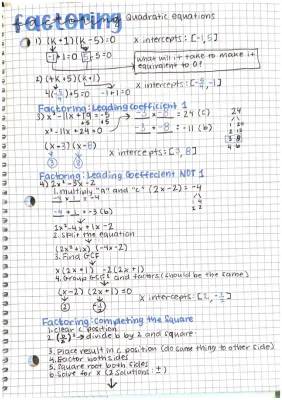 factoring Quadratic equations
1) (k+1)(k-5)=0 x intercepts: [-1,5]
-1+1=0 5-5=0
What will it take to make it equivalent to 0?
2) (4k+5)(k+1)
4(-5/4)+5=0 -1+1=0 x intercepts: [-5/4,-1]
Factoring: Leading coefficient 1
3) x²-11x+19=-5 -3 x -8 = 24 (c) 24
+5 +5
x²-11x+24=0 -3 + -8 = -11 (b)
(x-3)(x-8)
3 8 x intercepts: [3,8]
Factoring: Leading Coeffecient NOT 1
4) 2x²-3x-2
1. multiply "a" and "c" (2x-2)=-4
-4 x 1 = -4
-4 + 1 = -3 (b)
2x²-4x+1x-2
2. Split the equation
(2x²+1x) (-4x-2)
3. Find GCF
x(2x+1) -2(2x+1)
4. Group GCFS and factors (should be the same)
(x-2) (2x+1)=0
2 -1/2 x intercepts: [2,-1/2]
Factoring: Completing the Square
1. clear c position
2. (b/2)² → divide b by 2 and square
3. Place result in c position (do same thing to other side)
4. Factor both sides
5. Square root both sides
6. Solve for x (2 solutions: ±)